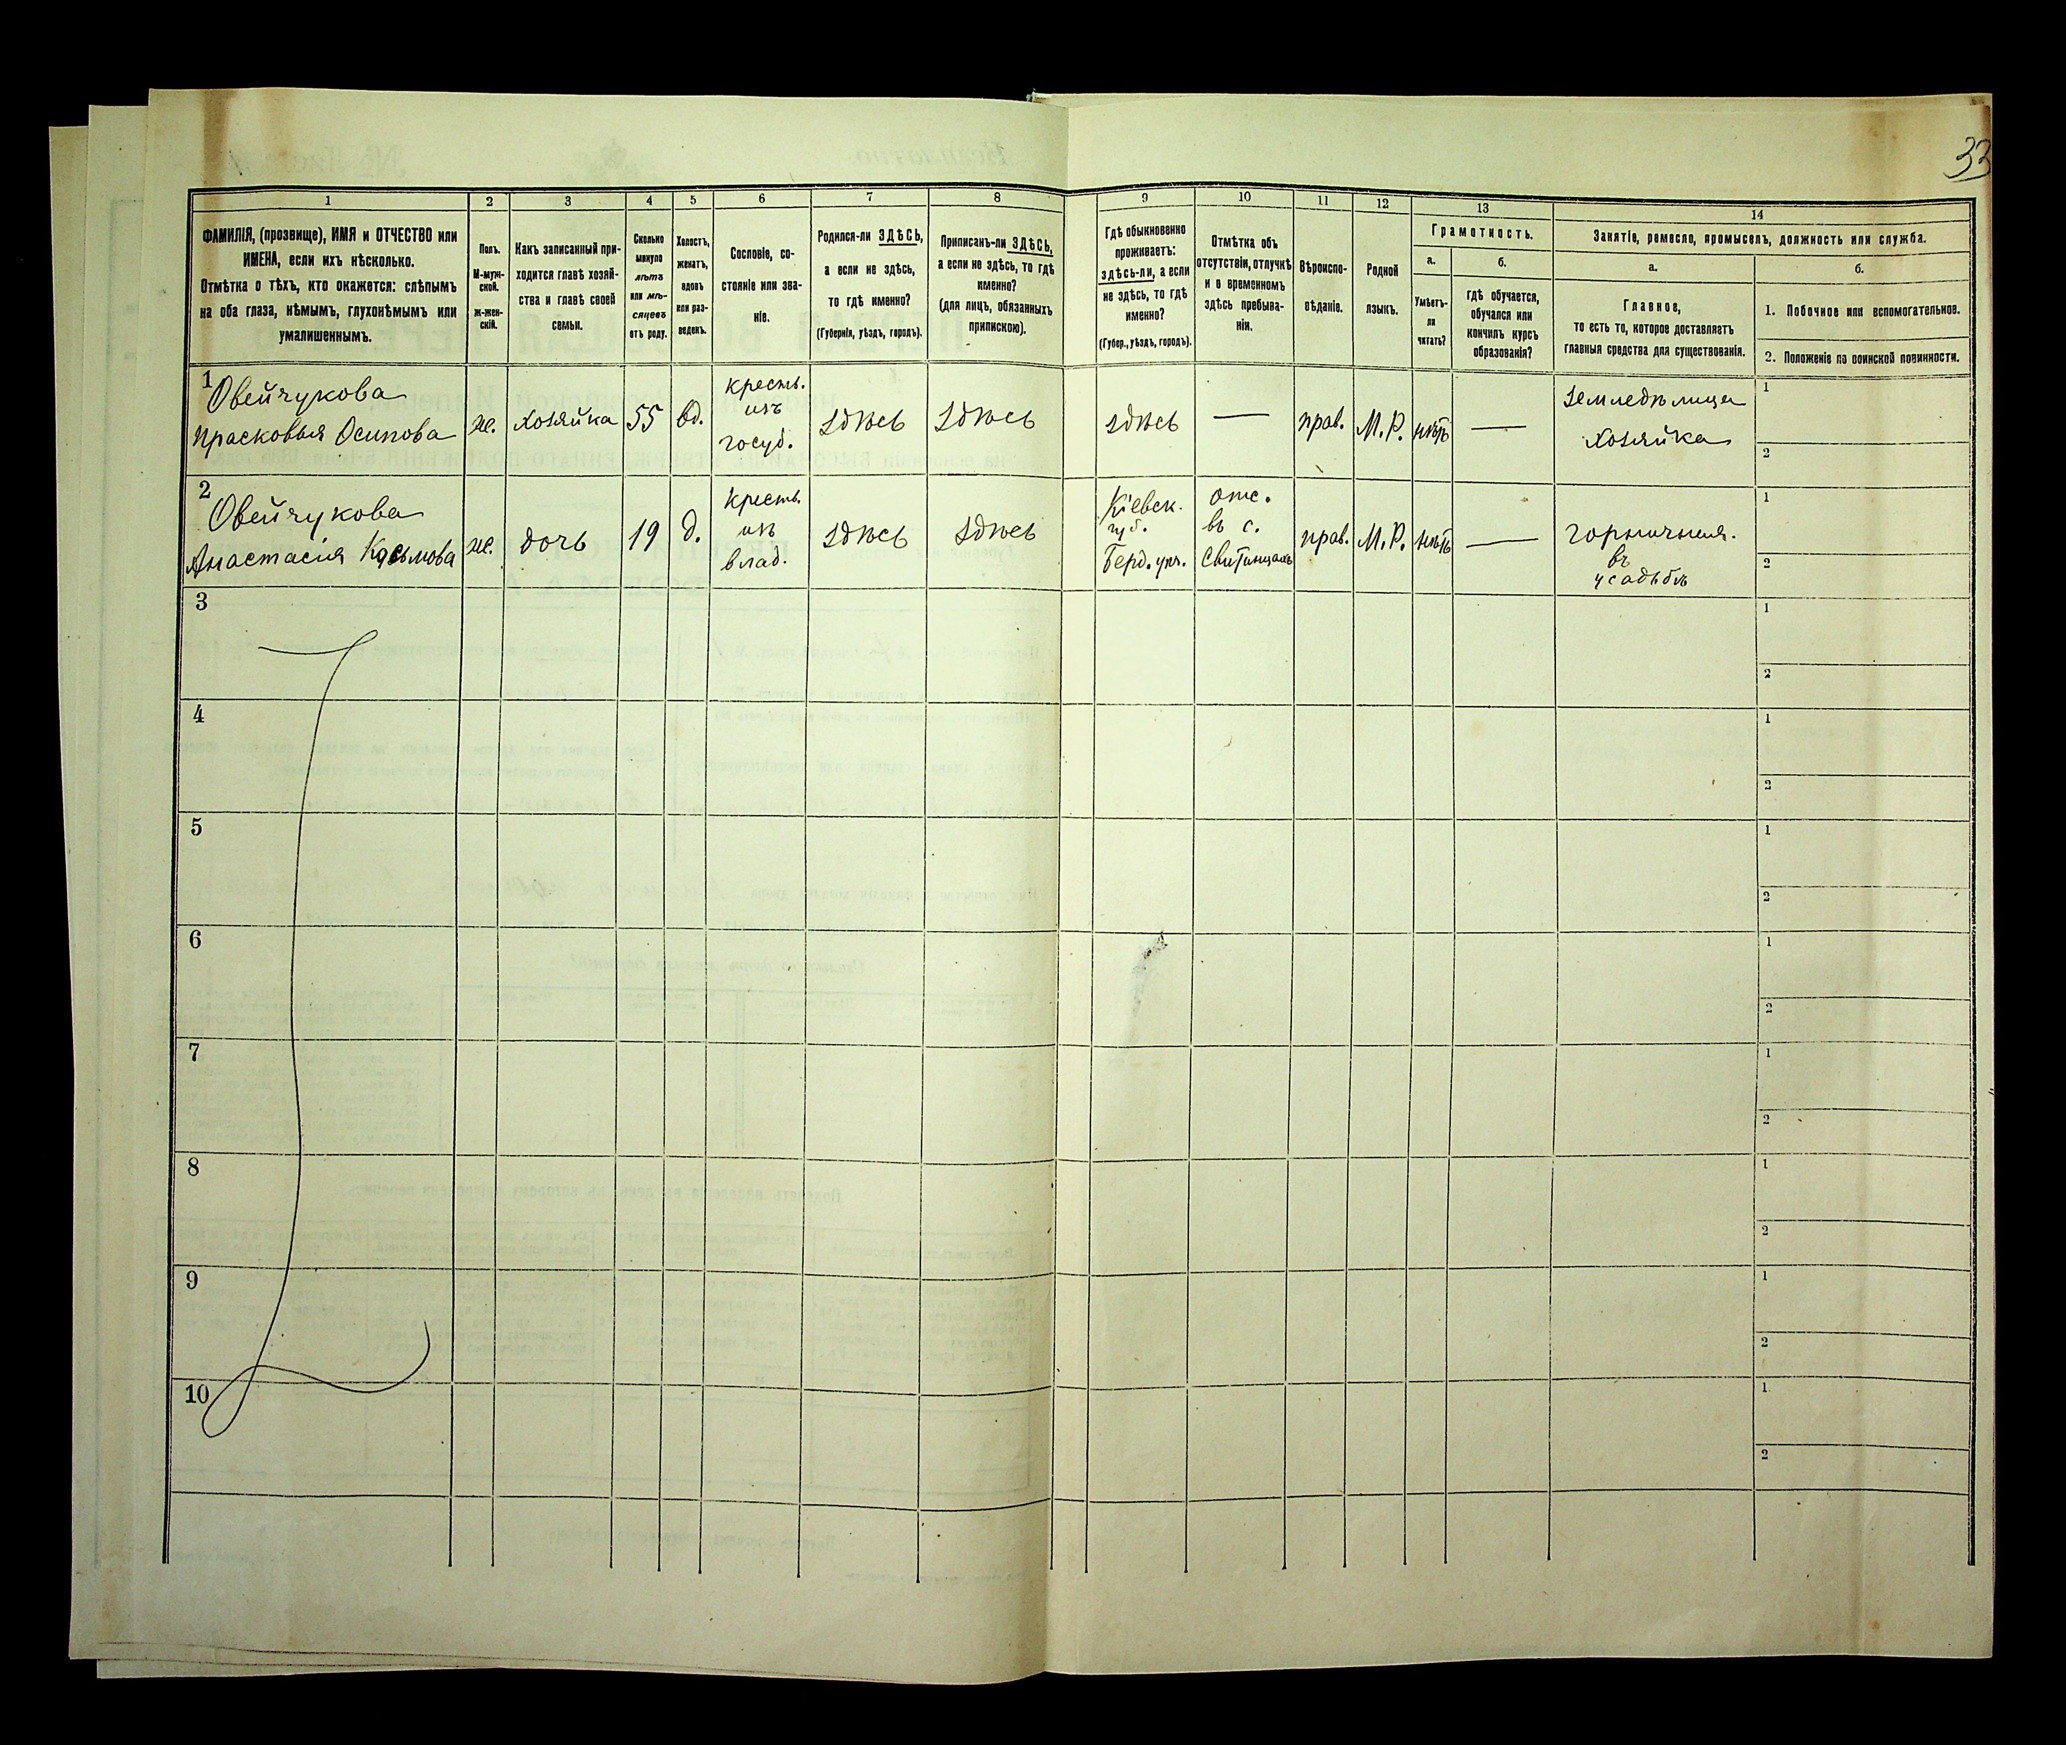 33
1
2
3
4
5
6
7
8
9
10
11
12
13
14
ФАМИЛІЯ, (прозвище), ИМЯ и ОТЧЕСТВО или
ИМЕНА, если ихъ нѣсколько.
Отмѣтка о тѣхъ, кто окажется: слѣпымъ
на оба глаза, нѣмымъ, глухонѣмымъ или
умалишеннымъ.
Полъ.
М-муж-
ской.
ж-жен-
скій.
Какъ записанный при-
ходится главѣ хозяй-
ства и главѣ своей
семьи.
Сколько
минуло
лѣтъ
или мѣ-
сяцевъ
отъ роду.
Холостъ,
женатъ,
вдовъ
или раз-
веденъ.
Сословіе, со-
стояніе или зва-
ніе.
Родился-ли ЗДѢСЬ,
а если не здѣсь,
то гдѣ именно?
(Губернія, уѣздъ, городъ).
Приписанъ-ли ЗДѢСЬ,
а если не здѣсь, то гдѣ
именно?
(для лицъ, обязанныхъ
припискою).
Гдѣ обыкновенно
проживаетъ:
здѣсь-ли, а если
не здѣсь, то гдѣ
именно?
(Губер., уѣздъ, городъ).
Отмѣтка объ
отсутствіи, отлучкѣ
и о временномъ
здѣсь пребыва-
ніи.
Вѣроиспо-
вѣданіе.
Родной
языкъ.
Грамотность.
а.
Умѣетъ-
ли
читать?
б.
гдѣ обучается,
обучался или
кончилъ курсъ
образованія?
Занятіе, ремесло, промыселъ, должность или служба.
а.
Главное,
то есть то, которое доставляетъ
главныя средства для существованія.
б.
1. Побочное или вспомогательное.
2. Положеніе по воинской повинности.
1
Овейчукова
Прасковья Осипова
ж.
хозяйка
55
вд.
кресть.
изъ
госуд.
здѣсь
здѣсь
здѣсь
—
прав.
М.Р.
нѣтъ
—
земледѣлица
хозяйка
1
2
2
Овейчукова
Анастасія Косьмова
ж.
дочь
19
д.
кресть.
изъ
влад.
здѣсь
здѣсь
Кіевск.
губ.
Берд. уѣз.
отс.
въ с.
прав.
М.Р.
нѣтъ
—
горничная.
въ
усадьбѣ
1
2
3
1
2
4
1
2
5
1
2
6
1
2
7
1
2
8
1
2
9
1
2
10
1
2